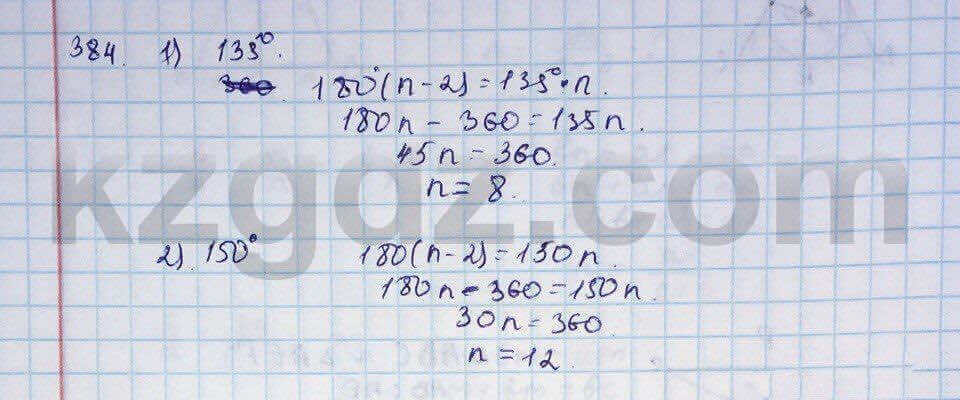 384. 1) 135°.
180°(n-2)=135°·n.
180n - 360=135n.
45n=360.
n=8.
2) 150° 180(n-2)=150n.
180n-360=150n.
30n=360
n=12.
kzgdz.com